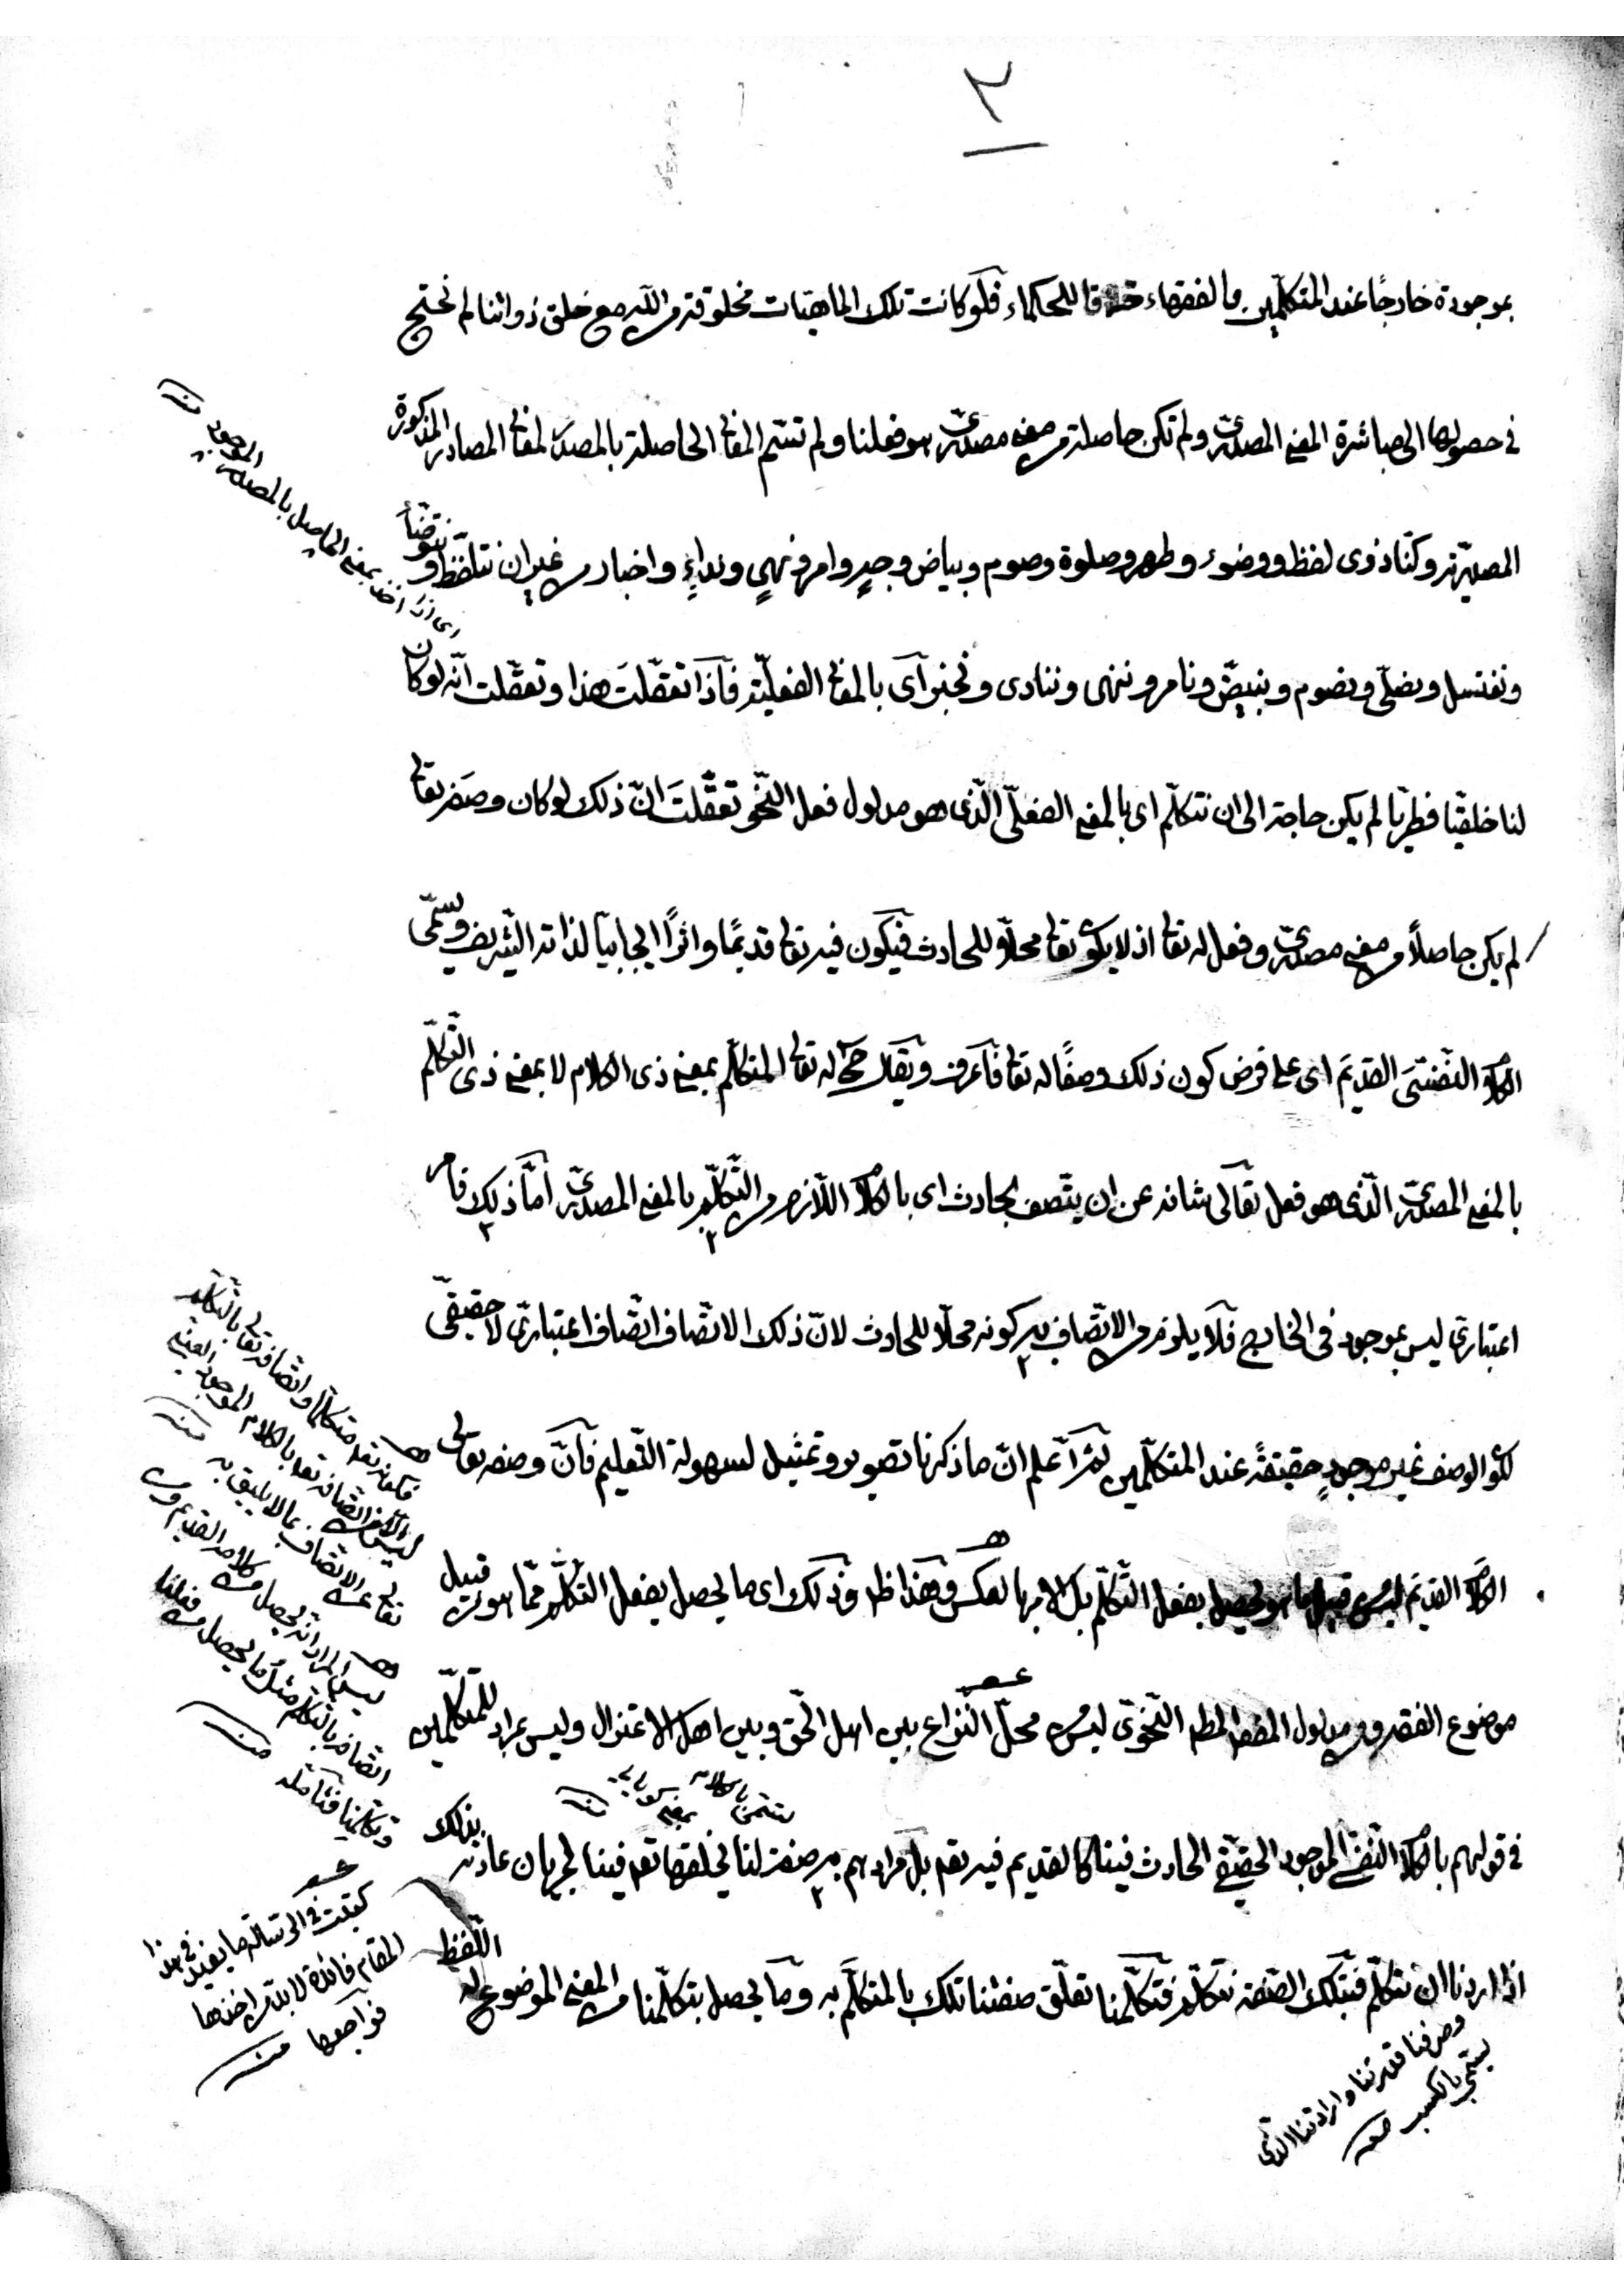 ٣
بموجودة خارجًا عند المتكلّمين والفقهاء خلافا للحكماء فلو كانت تلك الماهيّات مخلوقة من اللّه مع خلق ذواتنا لم نحتج
في حصولها الى مباشرة المعنى المصدرىّ ولم تكن حاصلة من معنى مصدرىّ هو فعلنا ولم تسمّ المعانى الحاصلة بالمصدر لمعانى المصادر المذكورة
المصدريّة وكنّا ذوى لفظ ووضوء وطهر وصلوة وصوم وبياض وجهر وامر ونهى ونداءٍ واخبار من غير ان نتلفّظ ونتوضّأ
ونغتسل ونصلّى ونصوم ونبيضّ ونأمر وننهى وننادى ونخبر اى بالمعانى الفعليّة فاذا تعقّلت هذا وتعقّلت انّه لو كان
لنا خلقيّا فطريّا لم يكن حاجة الى ان نتكلّم اى بالمعنى الفعلىّ الّذى هو مدلول فعل النّحو تعقّلتَ انّ ذلك لو كان وصفه تعالى
لم يكن حاصلاً من معنى مصدرىّ وفعل له تعالى اذ لا يكون تعالى محلاّ للحادث فيكون فيه تعالى قديمًا واثرًا ايجابيّا لذاته الشّريف ويسمّى
الكلام النّفسىّ القديم اى على فرض كون ذلك وصفًا له تعالى فاعرف ويقال ح له تعالى المتكلّم بمعنى ذى الكلام لا بمعنى ذى التّكلّم
بالمعنى المصدرىّ الّذى هو فعل تعالى شانه عن ان يتّصف بحادث اى بالكلام اللاّزم من التّكلّم بالمعنى المصدرىّ امّا ذلك فامر
اعتبارىّ ليس بموجود فى الخارج فلا يلزم من الاتّصاف به كونه محلاّ للحادث لانّ ذلك الاتّصاف اتّصاف اعتبارىّ لا حقيقىّ
لكون الوصف غير موجودٍ حقيقةً عند المتكلّمين ثمّ اعلم انّ ما ذكرنا تصوير وتمثيل لسهولة التّعليم فانّ وصفه تعالى
الكلام القديم ليس من قبيل ما هو يحصل بفعل التّكلّم بل الامر بالعكس وهذا ظ وذلك اى ما يحصل بفعل التّكلّم ممّا هو من قبيل
موضوع الفقه ومدلول النّحوىّ ليس محلّ النّزاع بين اهل الحقّ وبين اهل الاعتزال وليس بمراد للمتكلّمين
في قولهم بالكلام النّفسىّ الموجود الحقيقىّ الحادث فينا كالقديم فيه تعالى بل مرادهم به صفة لنا يخلقها تعالى فينا لجريان عادته بذلك
اذا اردنا ان نتكلّم فبتلك الصّفة نتكلّم فتكلّمنا تعلّق صفتنا تلك بالمتكلّم به وما يحصل بتكلّمنا من المعنى الموضوع له اللّفظ
بمعنى الحاصل بالمصدر الموجود منه
فكونه تعالى متكلّما واتّصافه تعالى بالتّكلّم
ليس اتّصافه تعالى بالكلام الموجود
تعالى عن الاتّصاف بما لا يليق به منه
ليس المراد انّه يحصل من كلامه القديم
اتّصافه بالتّكلّم مثل ما يحصل من فعلنا
وتكلّمنا فتأمّله منه
كتبت فى الرّسالة ما يفيد فى هذا
المقام فائدة لا بدّ من اخذها
فراجعها منه
وصرفنا قدرتنا وارادتنا الّذى
يسمّى بالكسب منه